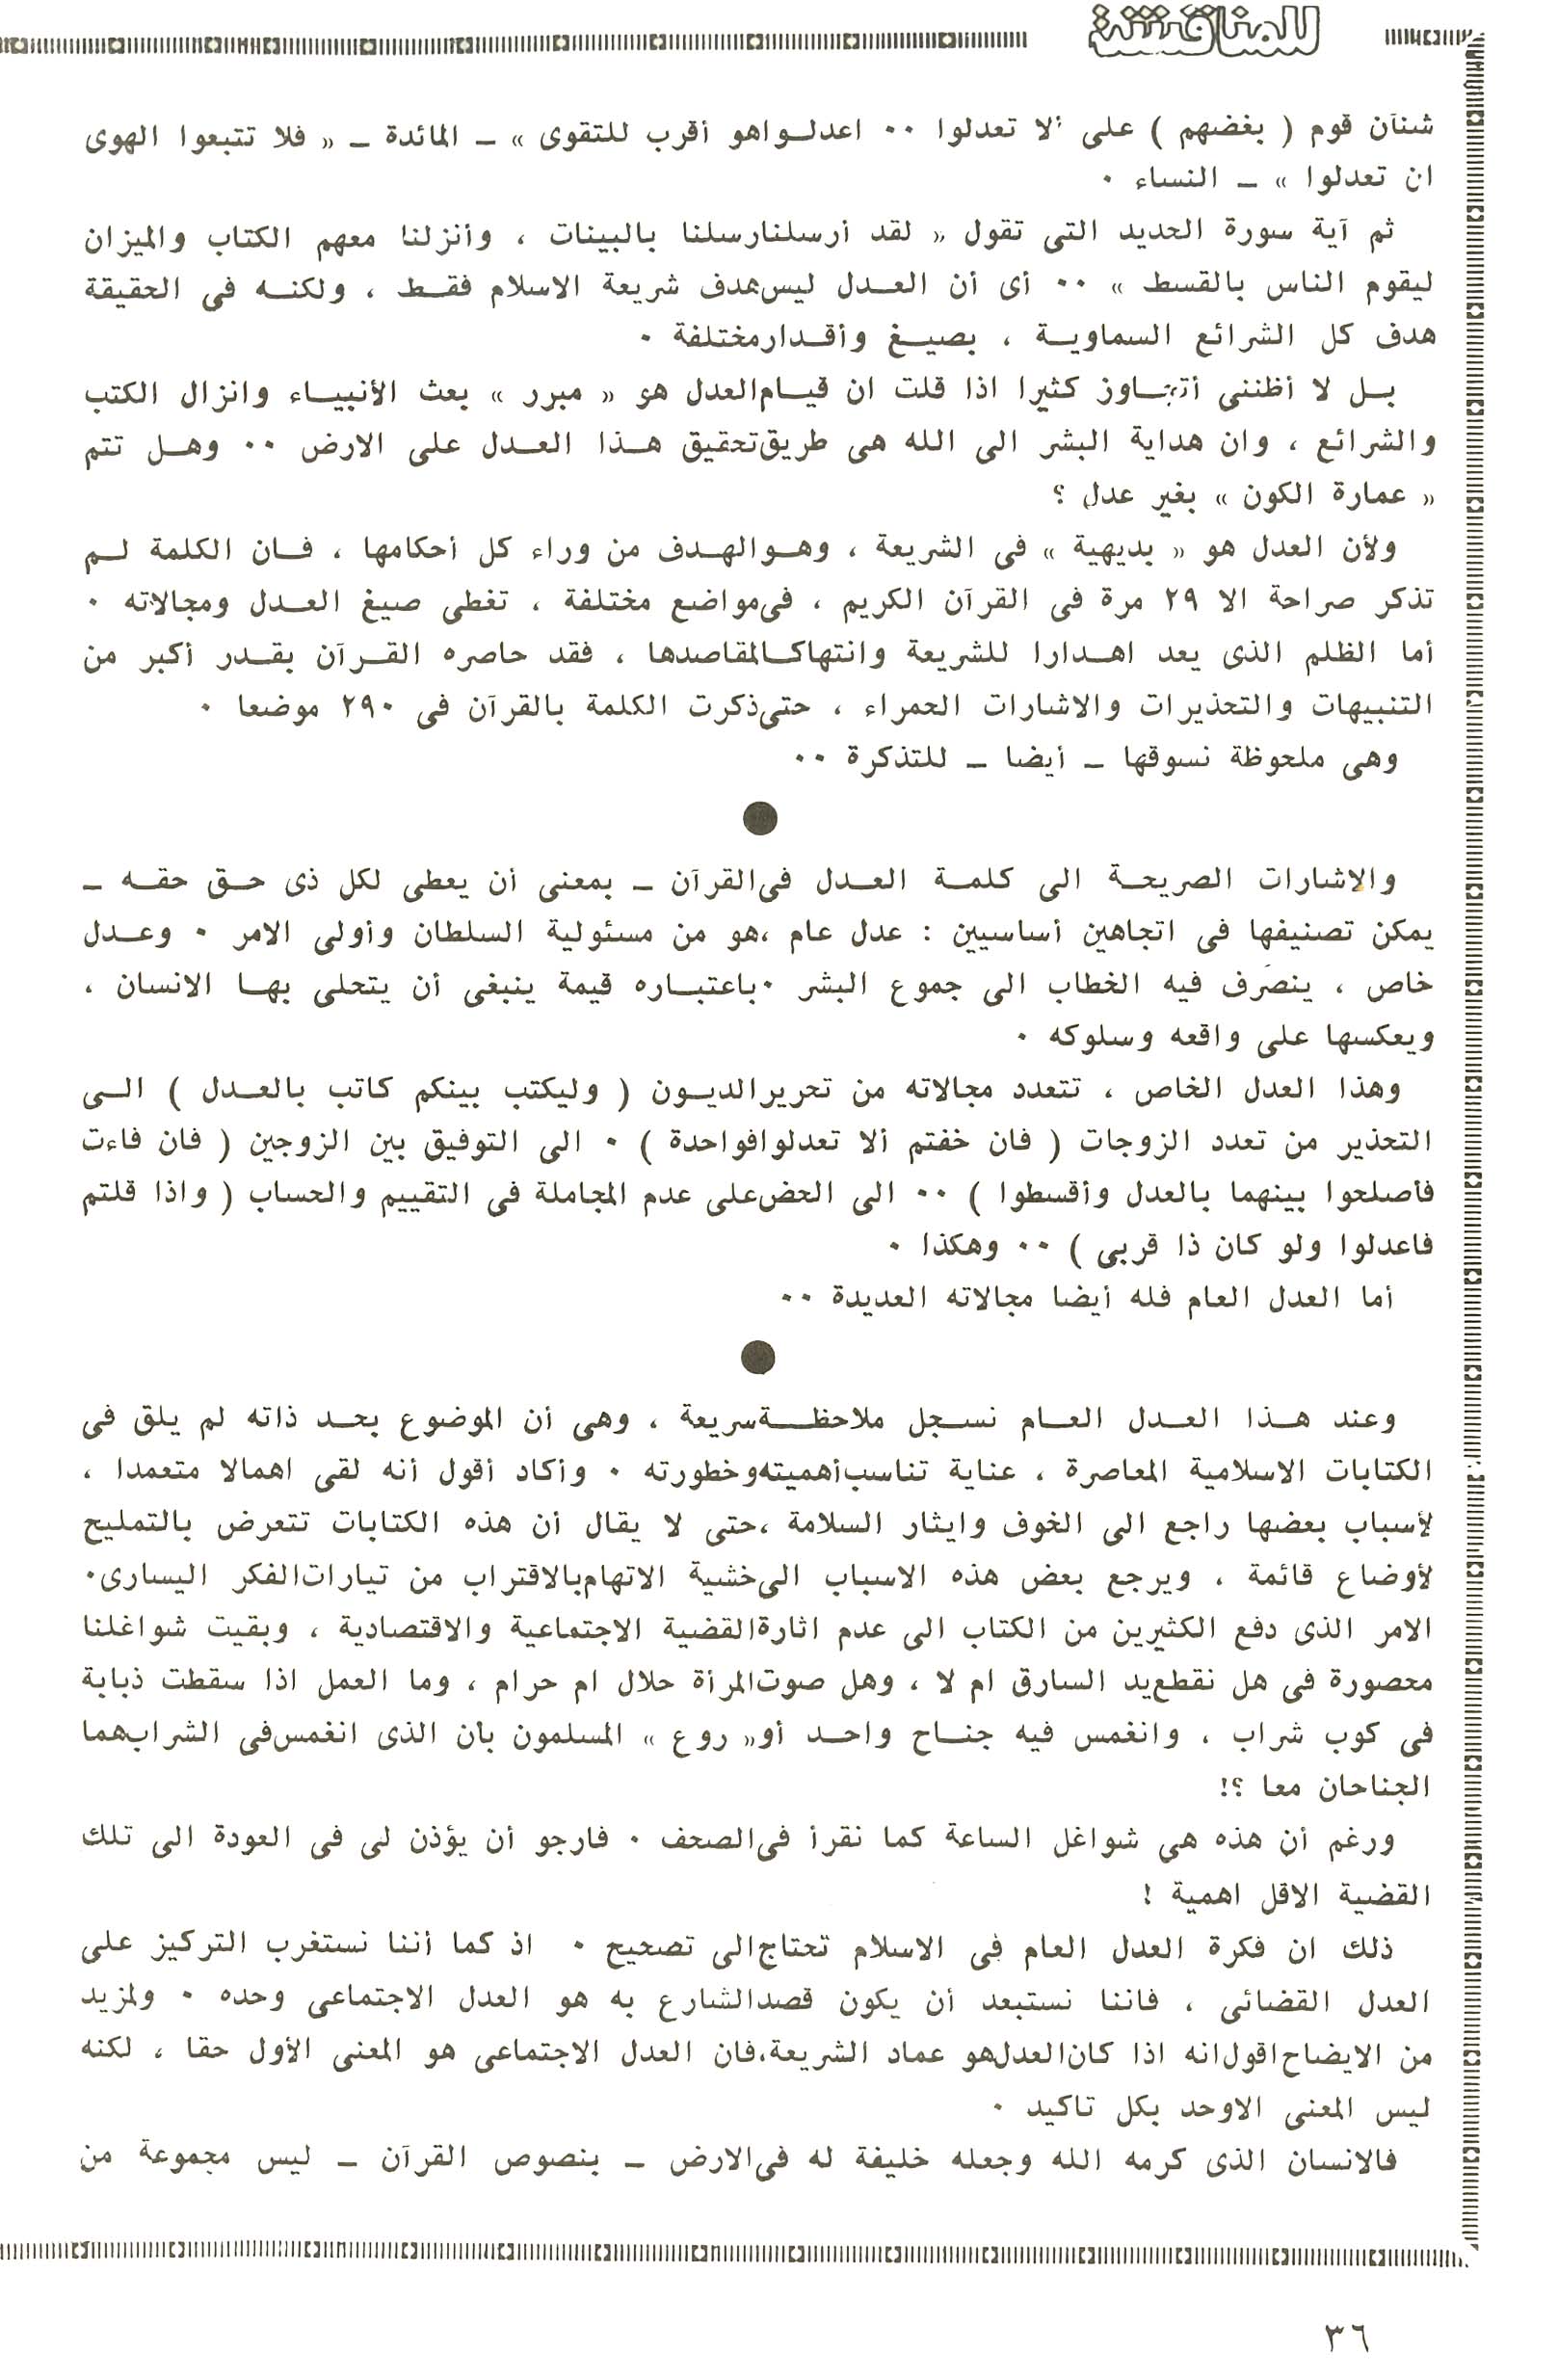 للمناقشة
شنآن قوم ( بغضهم ) على ألا تعدلوا ٠٠ اعدلوا هو أقرب للتقوى » ـ المائدة ـ « فلا تتبعوا الهوى
ان تعدلوا » ـ النساء ٠
ثم آية سورة الحديد التى تقول « لقد أرسلنا رسلنا بالبينات ، وأنزلنا معهم الكتاب والميزان
ليقوم الناس بالقسط » ٠٠ أى أن العدل ليس هدف شريعة الاسلام فقط ، ولكنه فى الحقيقة
هدف كل الشرائع السماوية ، بصيغ وأقدار مختلفة ٠
بل لا أظننى أتجاوز كثيرا اذا قلت ان قيام العدل هو « مبرر » بعث الأنبياء وانزال الكتب
والشرائع ، وان هداية البشر الى الله هى طريق تحقيق هذا العدل على الارض ٠٠ وهل تتم
« عمارة الكون » بغير عدل ؟
ولأن العدل هو « بديهية » فى الشريعة ، وهو الهدف من وراء كل أحكامها ، فان الكلمة لم
تذكر صراحة الا ٢٩ مرة فى القرآن الكريم ، فى مواضع مختلفة ، تغطى صيغ العدل ومجالاته ٠
أما الظلم الذى يعد اهدارا للشريعة وانتهاكا لمقاصدها ، فقد حاصره القرآن بقدر أكبر من
التنبيهات والتحذيرات والاشارات الحمراء ، حتى ذكرت الكلمة بالقرآن فى ٢٩٠ موضعا ٠
وهى ملحوظة نسوقها ـ أيضا ـ للتذكرة ٠٠
والاشارات الصريحة الى كلمة العدل فى القرآن ـ بمعنى أن يعطى لكل ذى حق حقه ـ
يمكن تصنيفها فى اتجاهين أساسيين : عدل عام ، هو من مسئولية السلطان وأولى الامر ٠ وعدل
خاص ، ينصرف فيه الخطاب الى جموع البشر ٠ باعتباره قيمة ينبغى أن يتحلى بها الانسان ،
ويعكسها على واقعه وسلوكه ٠
وهذا العدل الخاص ، تتعدد مجالاته من تحرير الديون ( وليكتب بينكم كاتب بالعدل ) الى
التحذير من تعدد الزوجات ( فان خفتم ألا تعدلوا فواحدة ) ٠ الى التوفيق بين الزوجين ( فان فاءت
فأصلحوا بينهما بالعدل وأقسطوا ) ٠٠ الى الحض على عدم المجاملة فى التقييم والحساب ( واذا قلتم
فاعدلوا ولو كان ذا قربى ) ٠٠ وهكذا ٠
أما العدل العام فله أيضا مجالاته العديدة ٠٠
وعند هذا العدل العام نسجل ملاحظة سريعة ، وهى أن الموضوع بحد ذاته لم يلق فى
الكتابات الاسلامية المعاصرة ، عناية تناسب أهميته وخطورته ٠ وأكاد أقول أنه لقى اهمالا متعمدا ،
لأسباب بعضها راجع الى الخوف وايثار السلامة ، حتى لا يقال أن هذه الكتابات تتعرض بالتمليح
لأوضاع قائمة ، ويرجع بعض هذه الاسباب الى خشية الاتهام بالاقتراب من تيارات الفكر اليسارى ٠
الامر الذى دفع الكثيرين من الكتاب الى عدم اثارة القضية الاجتماعية والاقتصادية ، وبقيت شواغلنا
محصورة فى هل نقطع يد السارق ام لا ، وهل صوت المرأة حلال ام حرام ، وما العمل اذا سقطت ذبابة
فى كوب شراب ، وانغمس فيه جناح واحد أو « روع » المسلمون بأن الذى انغمس فى الشراب هما
الجناحان معا ؟!
ورغم أن هذه هى شواغل الساعة كما نقرأ فى الصحف ٠ فارجو أن يؤذن لى فى العودة الى تلك
القضية الاقل اهمية !
ذلك ان فكرة العدل العام فى الاسلام تحتاج الى تصحيح ٠ اذ كما أننا نستغرب التركيز على
العدل القضائى ، فاننا نستبعد أن يكون قصد الشارع به هو العدل الاجتماعى وحده ٠ ولمزيد
من الايضاح اقول انه اذا كان العدل هو عماد الشريعة ، فان العدل الاجتماعى هو المعنى الأول حقا ، لكنه
ليس المعنى الاوحد بكل تاكيد ٠
فالانسان الذى كرمه الله وجعله خليفة له فى الارض ـ بنصوص القرآن ـ ليس مجموعة من
٣٦